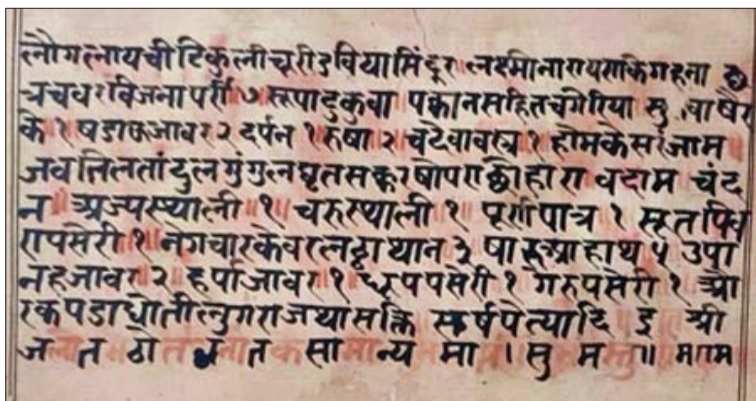 लौंगलायचीटिकुलीचूरीडवियासिंदूर लक्ष्मीनारायणकेगहना
त्रचवरविजनापरी ७ सूपादुकुवा पक्वानसहितचगेरिया सु
के १ षडाऊजावर २ दर्पन १ रुषा २ चढैवावस्त्र १ होमकेसरंजाम
जवतिलतांदुलगुंगुलघृतसक्करषोपराछोहोरा वदाम चंद
न अज्यस्थाली १ चरुस्थाली १ पूर्णपात्र १ सूतफि
रापसेरी १ नेगचारकेवर थान ३ षारूआहाथ ५ उपा
नहजावर २ हर्पाजावर १ धूपपसेरी १ गेरुपसेरी १ औ
रकपडाधोतीलुगराजथासक्ति सर्षपेत्यादि इ श्री
ज त सामान्य मा । सु म ॥